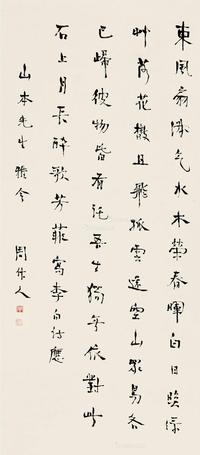 東風扇淑气水木榮春暉白日照綠
艸落花散且飛孤雲還空山眾鳥各
已歸彼物皆有託吾生獨無依對此
石上月長醉歌芳菲寫李白詩應
山本先生雅令
周作人